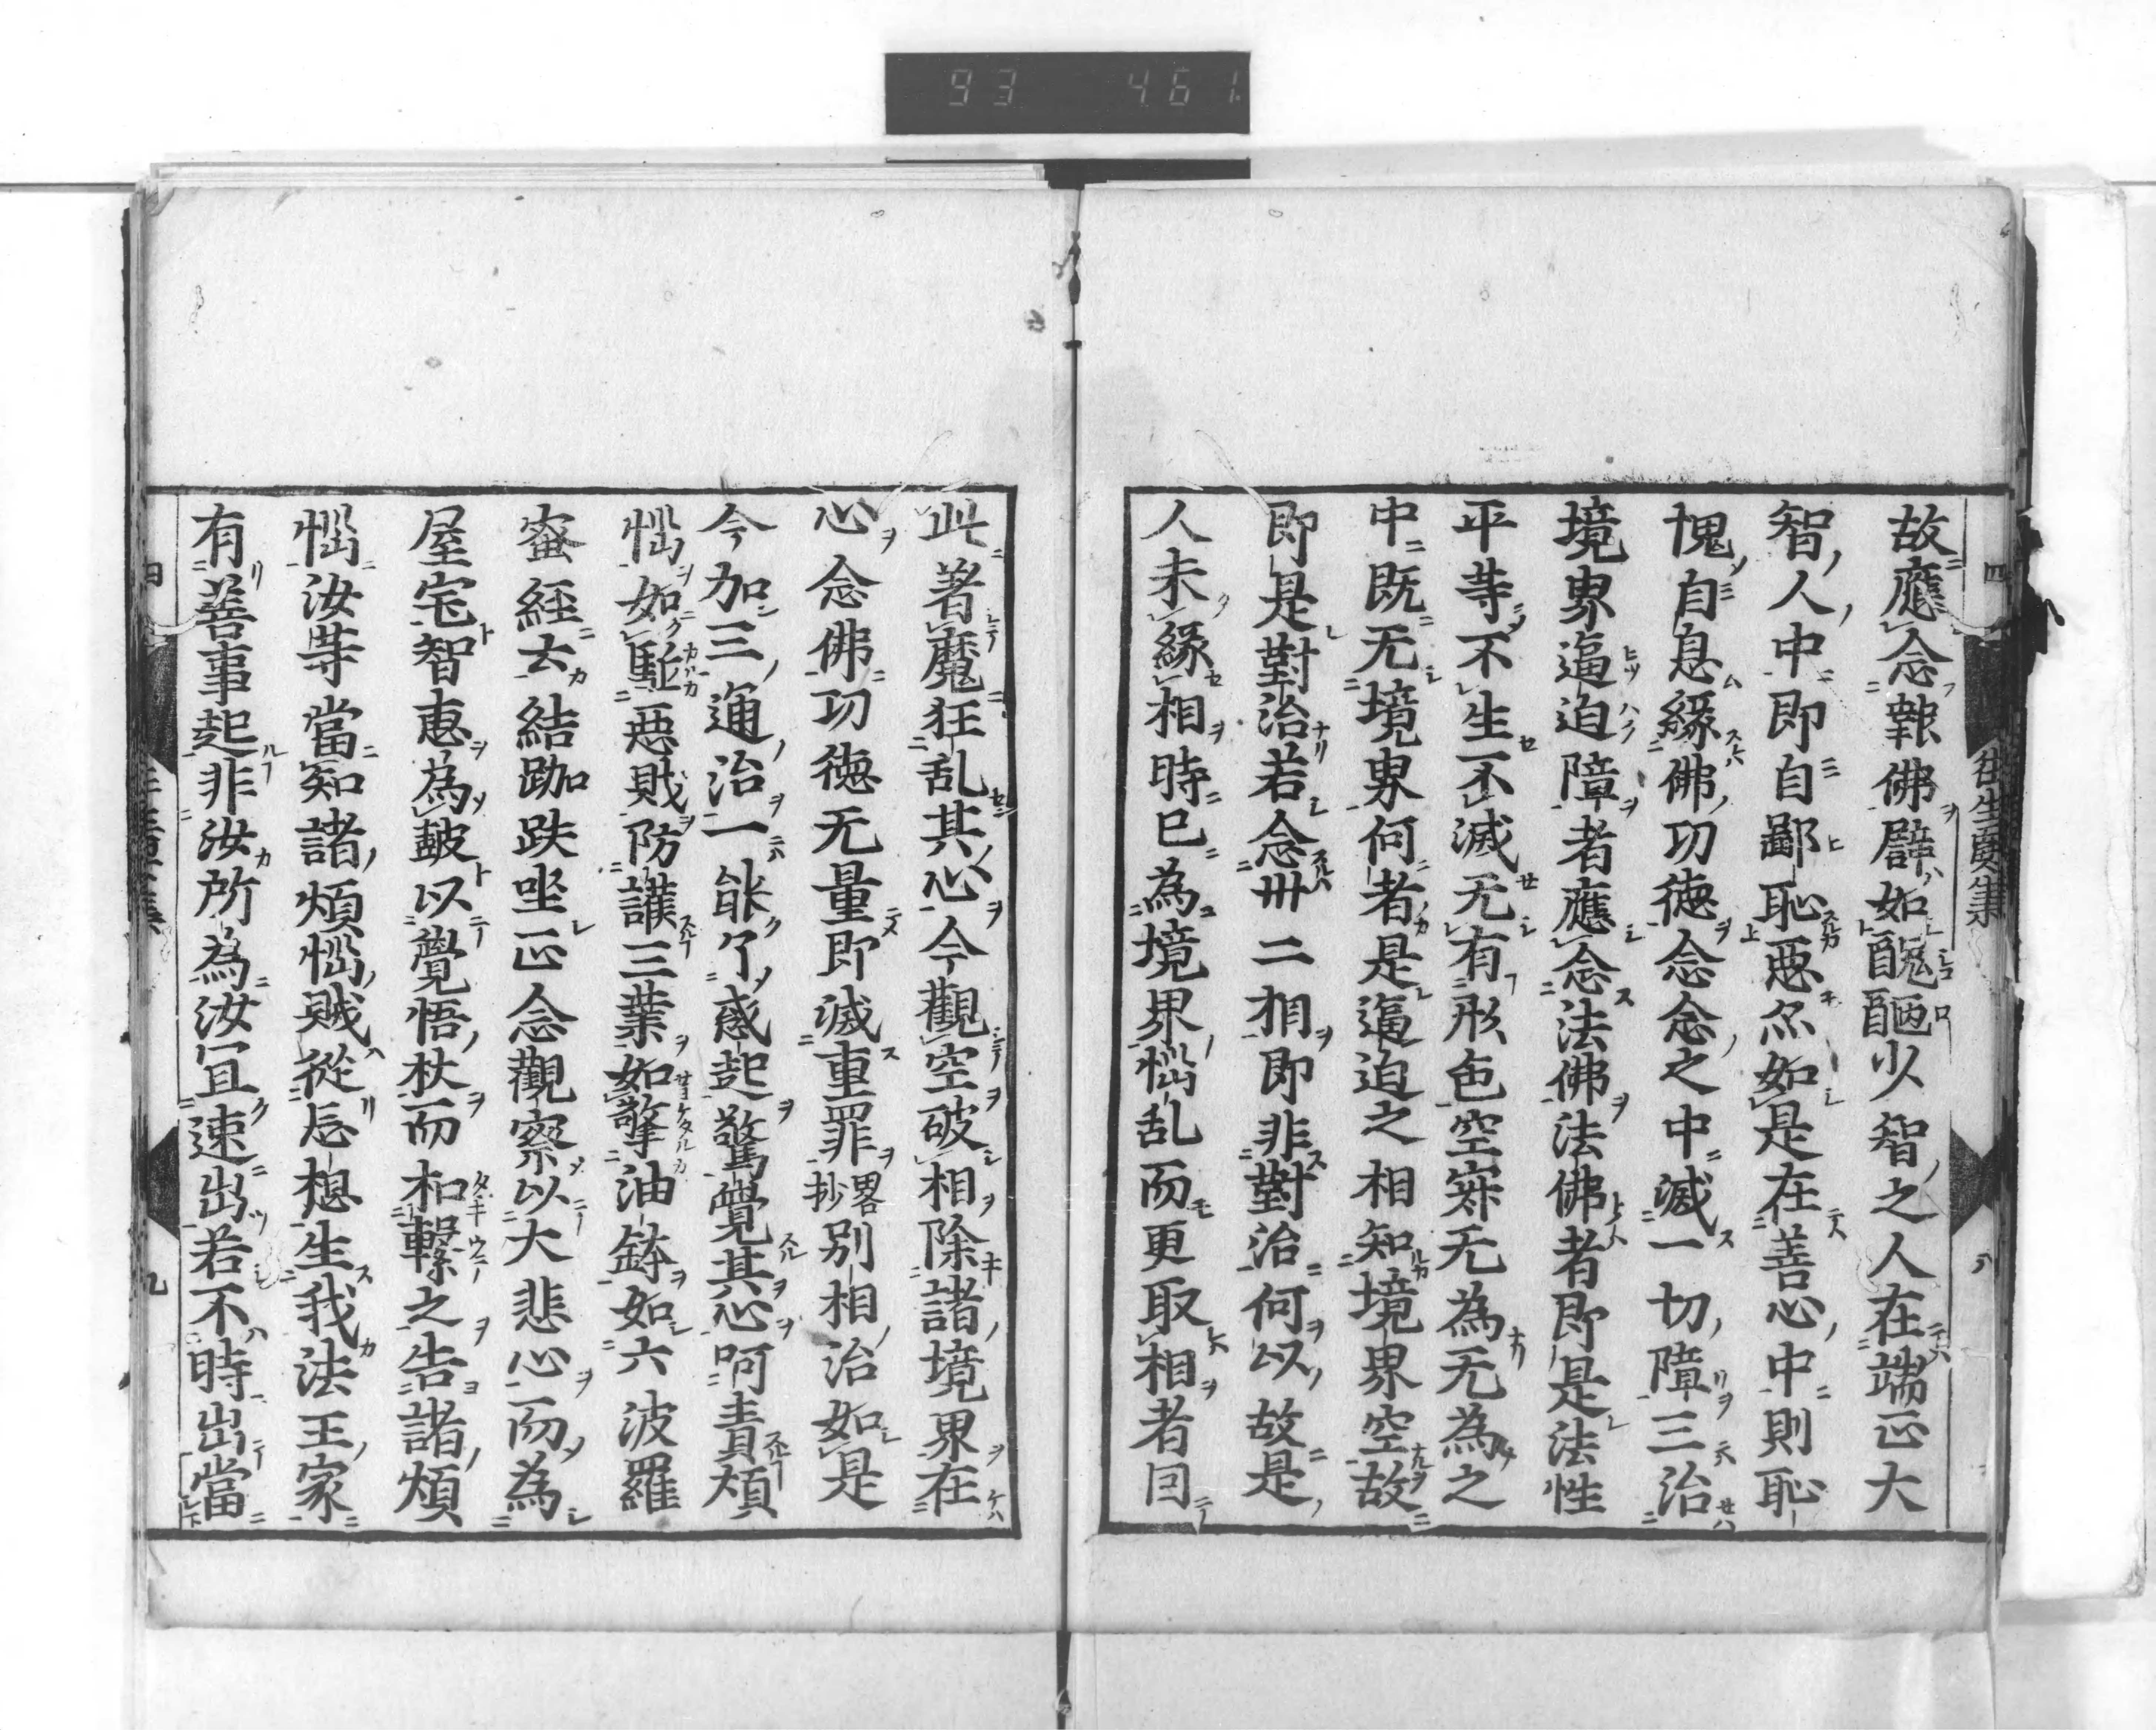 93 461
往生要集
四
八
故應念報佛譬如醜陋少智之人在端正大
智人中即自鄙恥惡尒如是在善心中則恥
愧自息緣佛功德念念之中滅一切障三治
境界逼迫障者應念法佛法佛者即是法性
平等不生不滅无有形色空寂无為无為之
中既无境界何者是逼迫之相知境界空故
即是對治若念卅二相即非對治何以故是
人未緣相時已為境界惱乱而更取相者因
此著魔狂乱其心今觀空破相除諸境界在
心念佛功德无量即滅重罪略抄別相治如是
今加三通治一能了惑起驚覺其心呵責煩
惱如駈惡賊防護三業如擎油鉢如六波羅
蜜經云結跏趺坐正念觀察以大悲心而為
屋宅智恵為皷以覺悟杖而扣擊之告諸煩
惱汝等當知諸煩惱賊從忘想生我法王家
有善事起非汝所為汝冝速出若不時出當
四
九